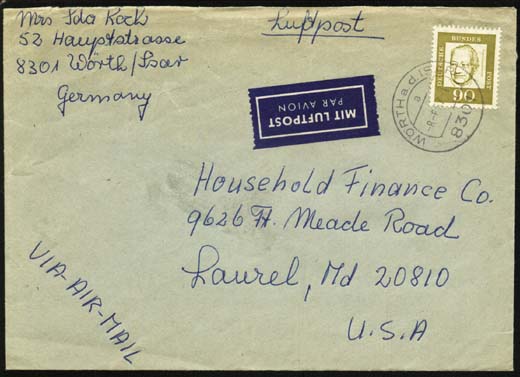 Mrs Ida Rock
52 Hauptstrasse
8301 Wörth/Isar
Germany
Luftpost
DEUTSCHE BUNDES POST
90
WÖRTH a d
830
a
MIT LUFTPOST
PAR AVION
Household Finance Co.
9626 Ft. Meade Road
Laurel, Md 20810
U.S.A
VIA-AIR-MAIL